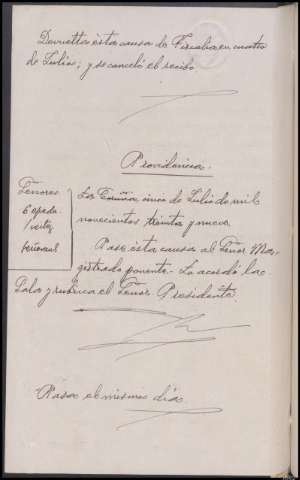 Devuelta esta causa de Fiscalía en cuatro
de Julio; y se canceló el recibo
Providencia.
Señores
La Coruña cinco de Julio de mil
novecientos treinta y nueve.
Pase esta causa al Señor Ma-
gistrado ponente. Lo acordó la
Sala y rubrica el Señor Presidente.
Pasa el mismo día.